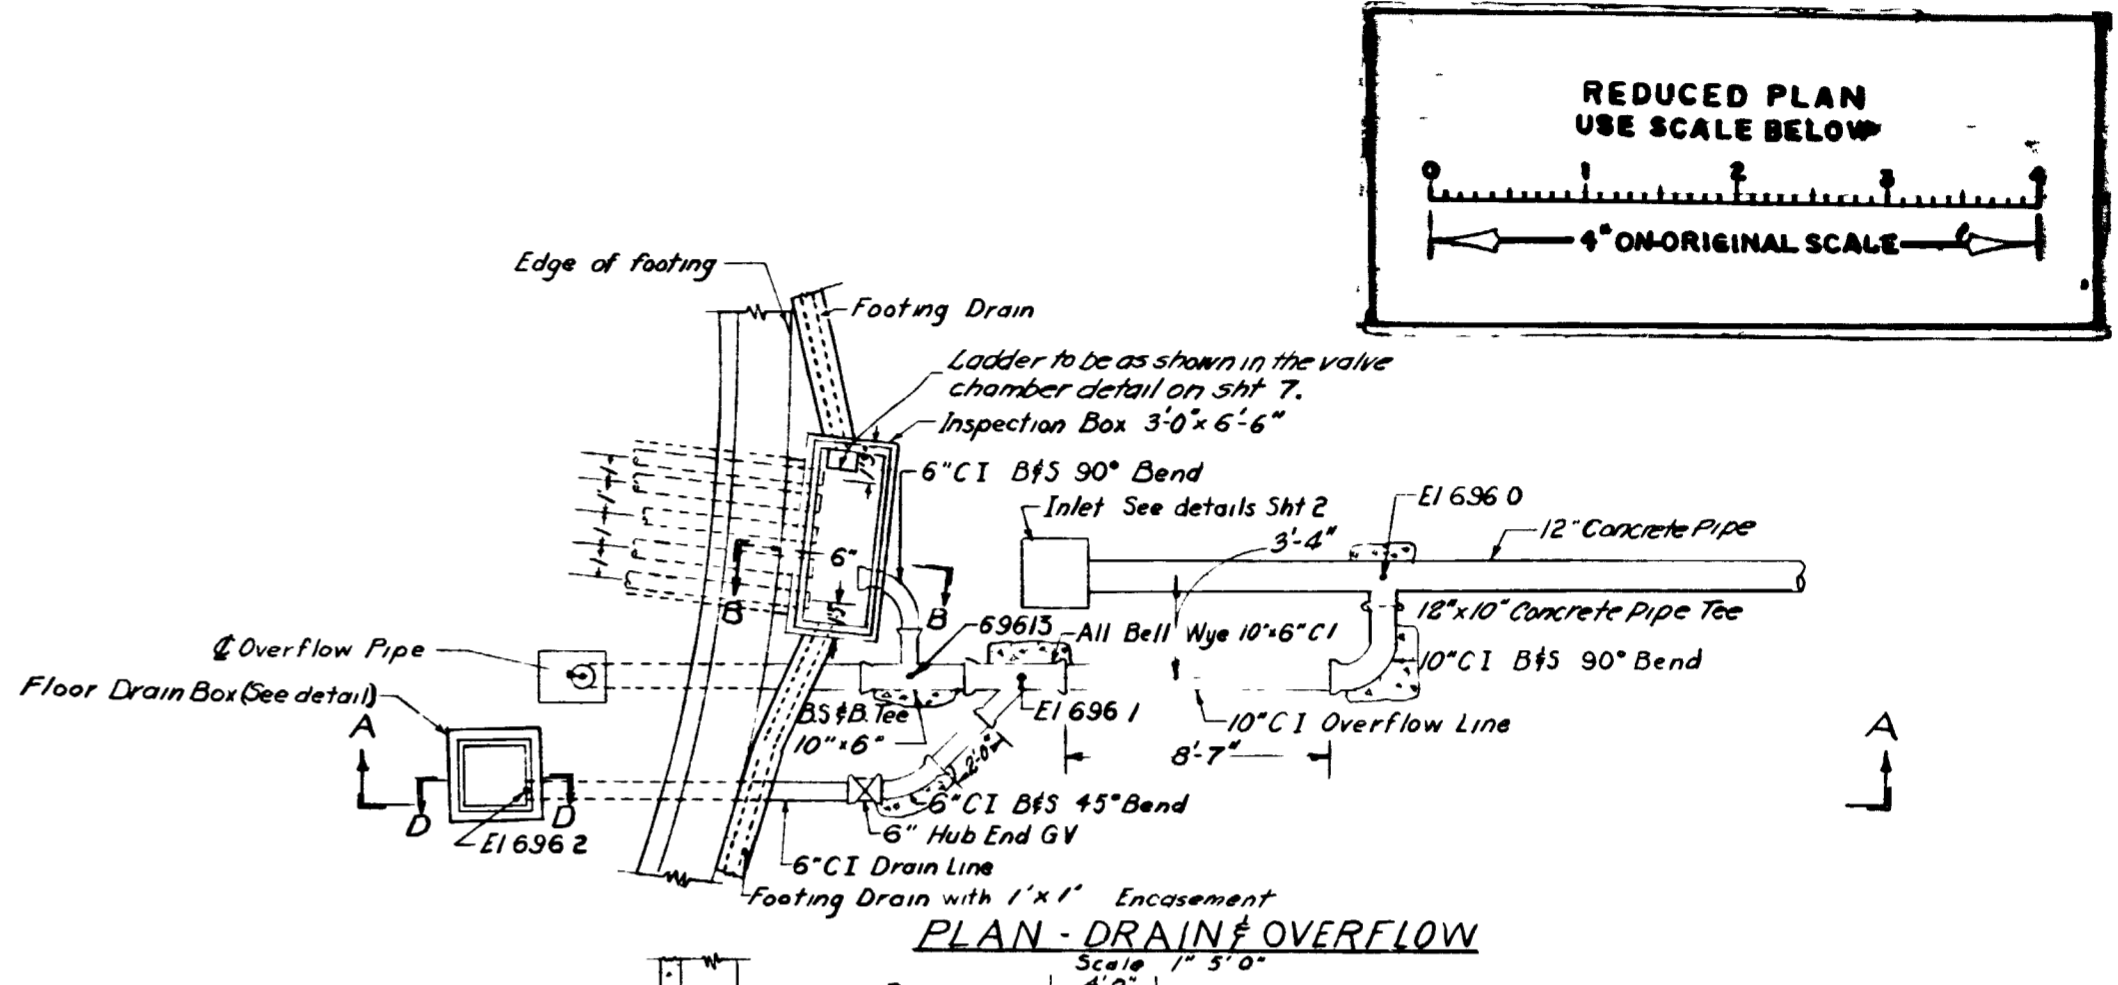 REDUCED PLAN
USE SCALE BELOW
0 1 2 3 4
4" ON-ORIGINAL SCALE
Edge of footing
Footing Drain
Ladder to be as shown in the valve
chamber detail on sht 7.
Inspection Box 3'-0" x 6'-6"
6" CI B&S 90° Bend
Inlet See details Sht 2
El 696 0
3'-4"
12" Concrete Pipe
1' 1' 1' 1'
6"
B B
12"x10" Concrete Pipe Tee
69613
All Bell Wye 10"x6" CI
℄ Overflow Pipe
10" CI B&S 90° Bend
Floor Drain Box (See detail)
B.S & B. Tee
10" x 6"
El 696 1
10" CI Overflow Line
A A
8'-7"
2'-0"
D D
6" CI B&S 45° Bend
El 696 2
6" Hub End GV
6" CI Drain Line
Footing Drain with 1' x 1' Encasement
PLAN - DRAIN & OVERFLOW
Scale 1" 5'0"